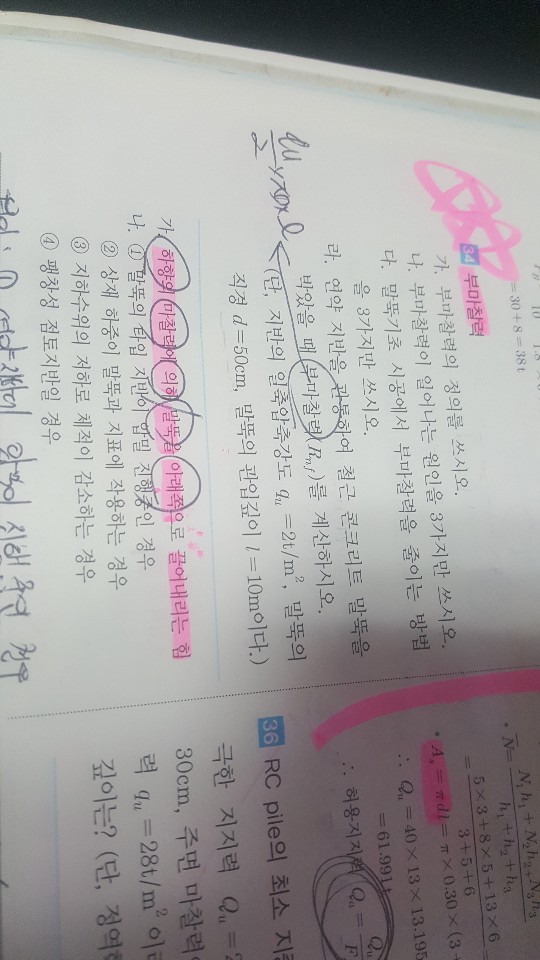 = 30 + 8 = 38t
34 부마찰력
가. 부마찰력의 정의를 쓰시오.
나. 부마찰력이 일어나는 원인을 3가지만 쓰시오.
다. 말뚝기초 시공에서 부마찰력을 줄이는 방법
을 3가지만 쓰시오.
라. 연약 지반을 관통하여 철근 콘크리트 말뚝을
박았을 때 부마찰력(R_nf)를 계산하시오.
(단, 지반의 일축압축강도 q_u = 2t/m², 말뚝의
직경 d = 50cm, 말뚝의 관입깊이 l = 10m이다.)
가. 하향의 마찰력에 의해 말뚝을 아래쪽으로 끌어내리는 힘
나. ① 말뚝의 타입 지반이 압밀 진행중인 경우
② 상재 하중이 말뚝과 지표에 작용하는 경우
③ 지하수위의 저하로 체적이 감소하는 경우
④ 팽창성 점토지반일 경우
• N̄ = (N₁h₁ + N₂h₂ + N₃h₃) / (h₁ + h₂ + h₃)
= (5×3+8×5+13×6) / (3+5+6) =
• A_s = πdl = π×0.30×(3+
∴ Q_u = 40×13×13.195
= 61.991t
∴ 허용지지력 Q_a = Q_u / F
36 RC pile의 최소 지
극한 지지력 Q_u = 2
30cm, 주면 마찰력
력 q_u = 28t/m² 이
깊이는? (단, 정역학